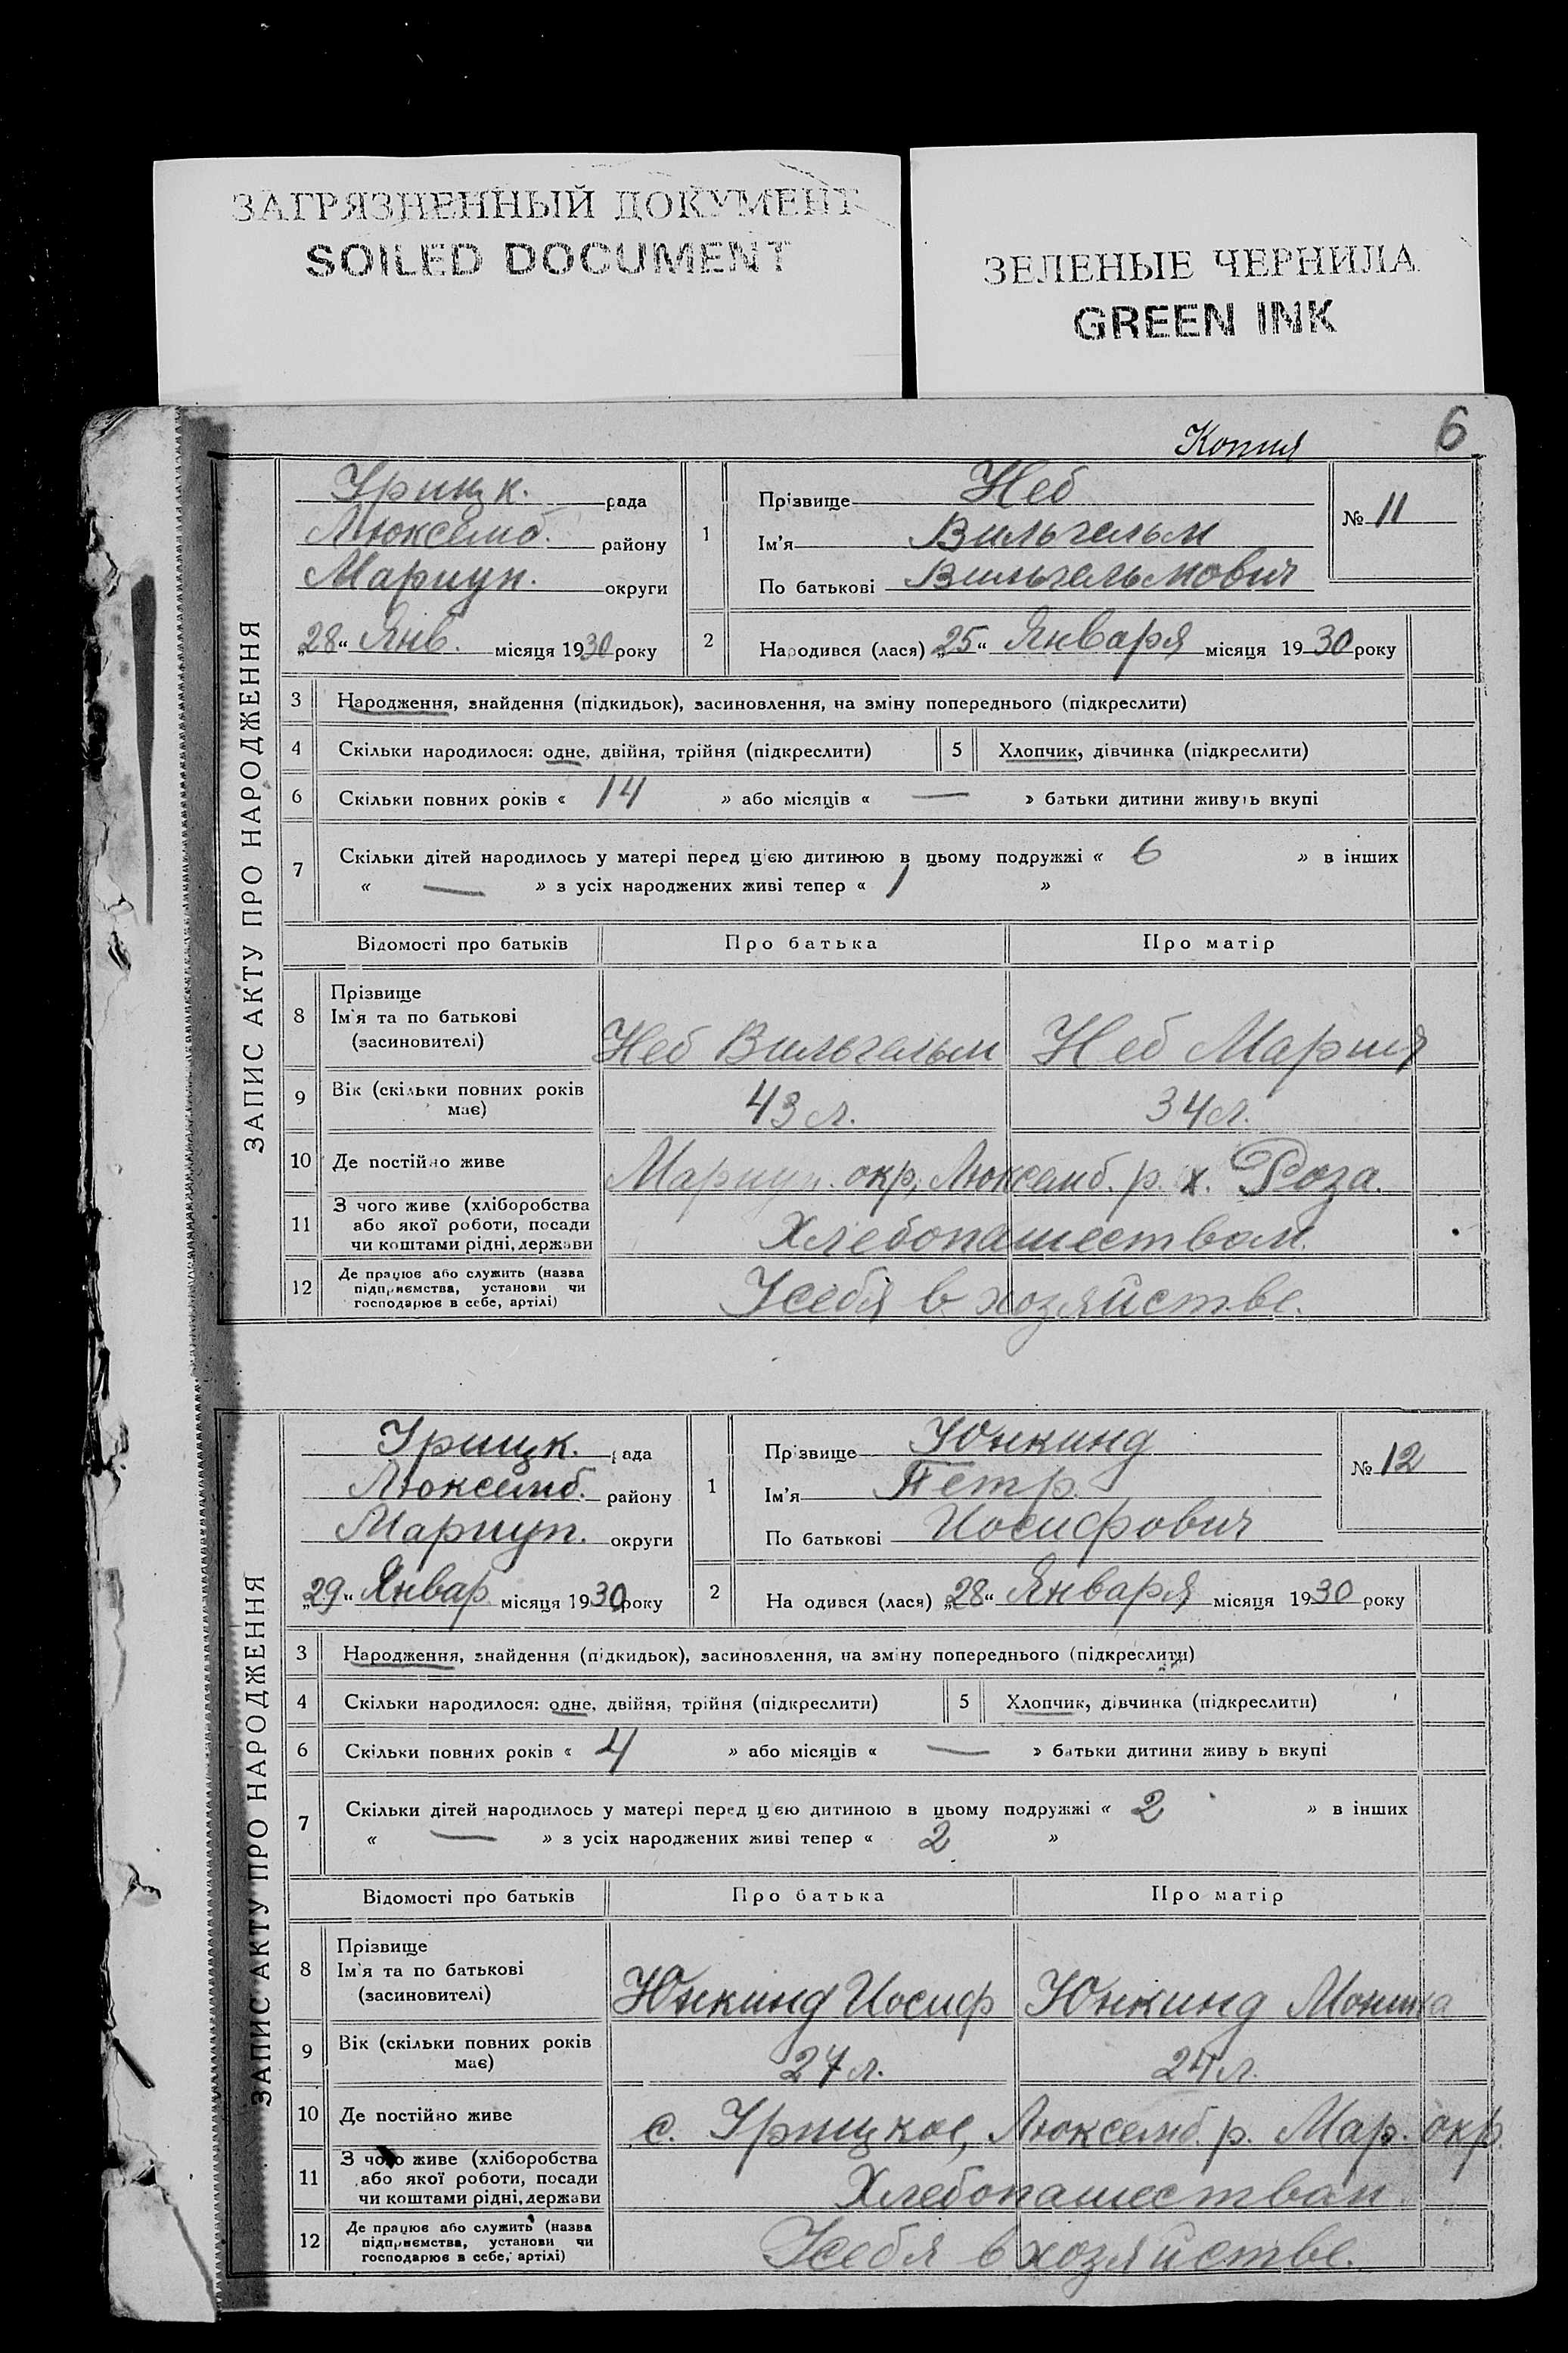 ЗАГРЯЗНЕННЫЙ ДОКУМЕНТ
SOILED DOCUMENT
ЗЕЛЕНЫЕ ЧЕРНИЛА
GREEN INK
Копия
6
ЗАПИС АКТУ ПРО НАРОДЖЕННЯ
Урицк. рада
Люксемб. району
Мариуп. округи
„28“ Янв. місяця 1930 року
1 Прізвище Неб
Ім'я Вильгельм
По батькові Вильгельмович
№ 11
2 Народився (лася) „25“ Января місяця 1930 року
3 Народження, знайдення (підкидьок), засиновлення, на зміну попереднього (підкреслити)
4 Скільки народилося: одне, двійня, трійня (підкреслити) 5 Хлопчик, дівчинка (підкреслити)
6 Скільки повних років « 14 » або місяців « — » батьки дитини живуть вкупі
7 Скільки дітей народилось у матері перед цією дитиною в цьому подружжі « 6 » в інших
« — » з усіх народжених живі тепер « 1 »
Відомості про батьків Про батька Про матір
8 Прізвище
Ім'я та по батькові
(засиновителі)
Неб Вильгельм Неб Мария
9 Вік (скільки повних років
має)
43 л. 34 л.
10 Де постійно живе Мариуп. окр, Люксемб. р. х. Роза.
11 З чого живе (хліборобства
або якої роботи, посади
чи коштами рідні, держави
Хлебопашеством.
12 Де працює або служить (назва
підприємства, установи чи
господарює в себе, артілі)
У себя в хозяйстве.
ЗАПИС АКТУ ПРО НАРОДЖЕННЯ
Урицк. рада
Люксемб. району
Мариуп. округи
„29“ Январ місяця 1930 року
1 Прізвище Юнкинд
Ім'я Петр.
По батькові Иосифович
№ 12
2 На одився (лася) „28“ Января місяця 1930 року
3 Народження, знайдення (підкидьок), засиновлення, на зміну попереднього (підкреслити)
4 Скільки народилося: одне, двійня, трійня (підкреслити) 5 Хлопчик, дівчинка (підкреслити)
6 Скільки повних років « 4 » або місяців « — » батьки дитини живу ь вкупі
7 Скільки дітей народилось у матері перед цією дитиною в цьому подружжі « 2 » в інших
« — » з усіх народжених живі тепер « 2 »
Відомості про батьків Про батька Про матір
8 Прізвище
Ім'я та по батькові
(засиновителі)
Юнкинд Иосиф Юнкинд Моника
9 Вік (скільки повних років
має)
27 л. 24 л.
10 Де постійно живе с. Урицкое, Люксемб. р. Мар. окр.
11 З чого живе (хліборобства
або якої роботи, посади
чи коштами рідні, держави
Хлебопашеством
12 Де працює або служить (назва
підприємства, установи чи
господарює в себе, артілі)
У себя в хозяйстве.